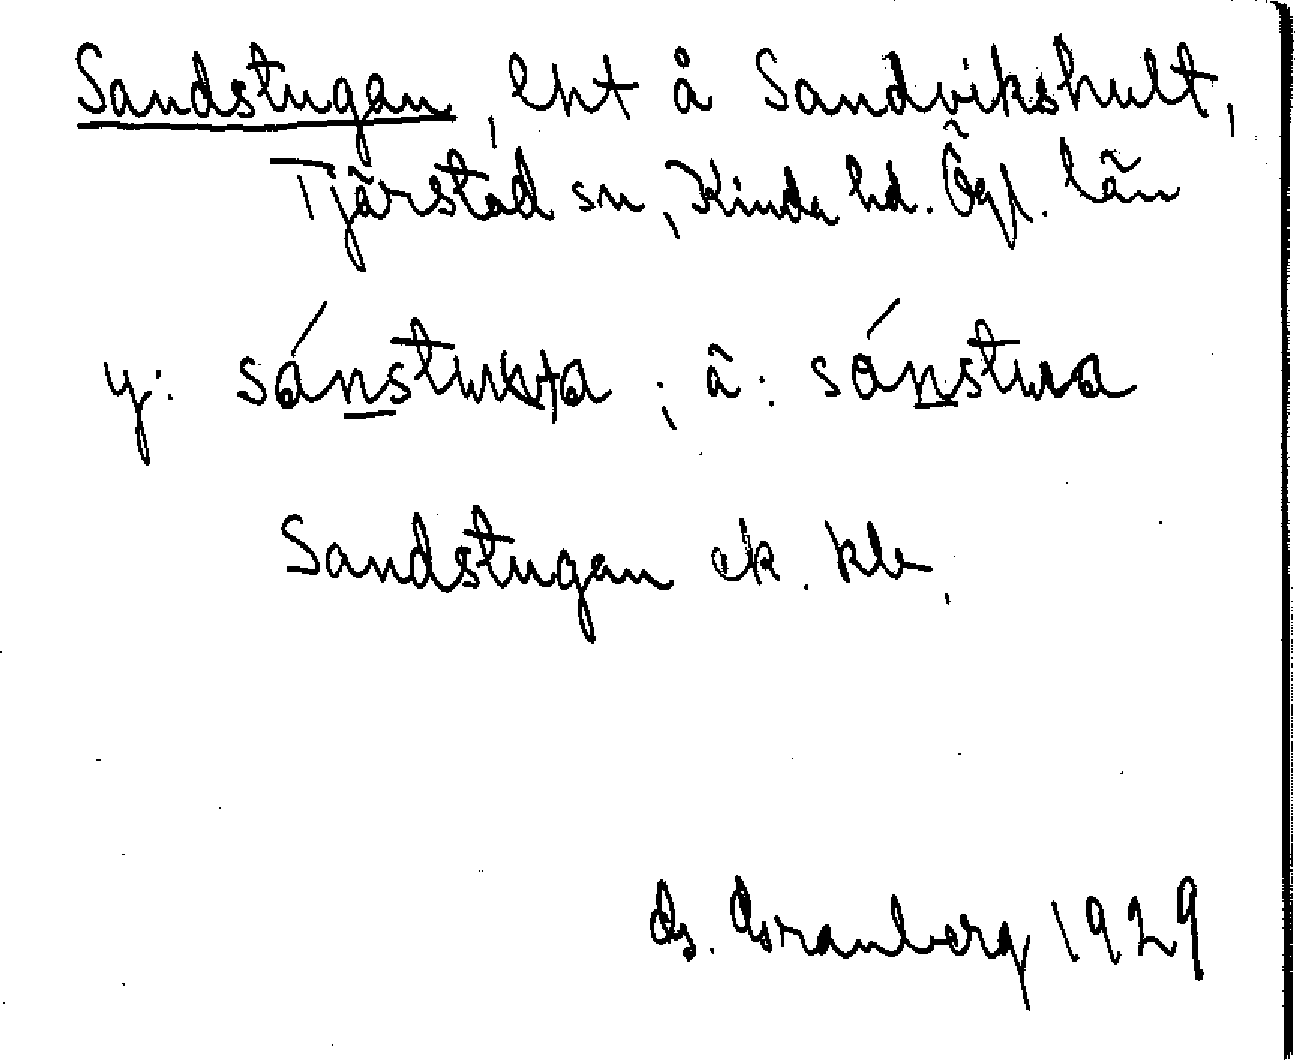 Sandstugan, lht å Sandvikshult,
Tjärstad sn, Kinda hd. Ögl. län
y: ; ä: sánstua
Sandstugan ek. kbl.
G. Granberg 1929